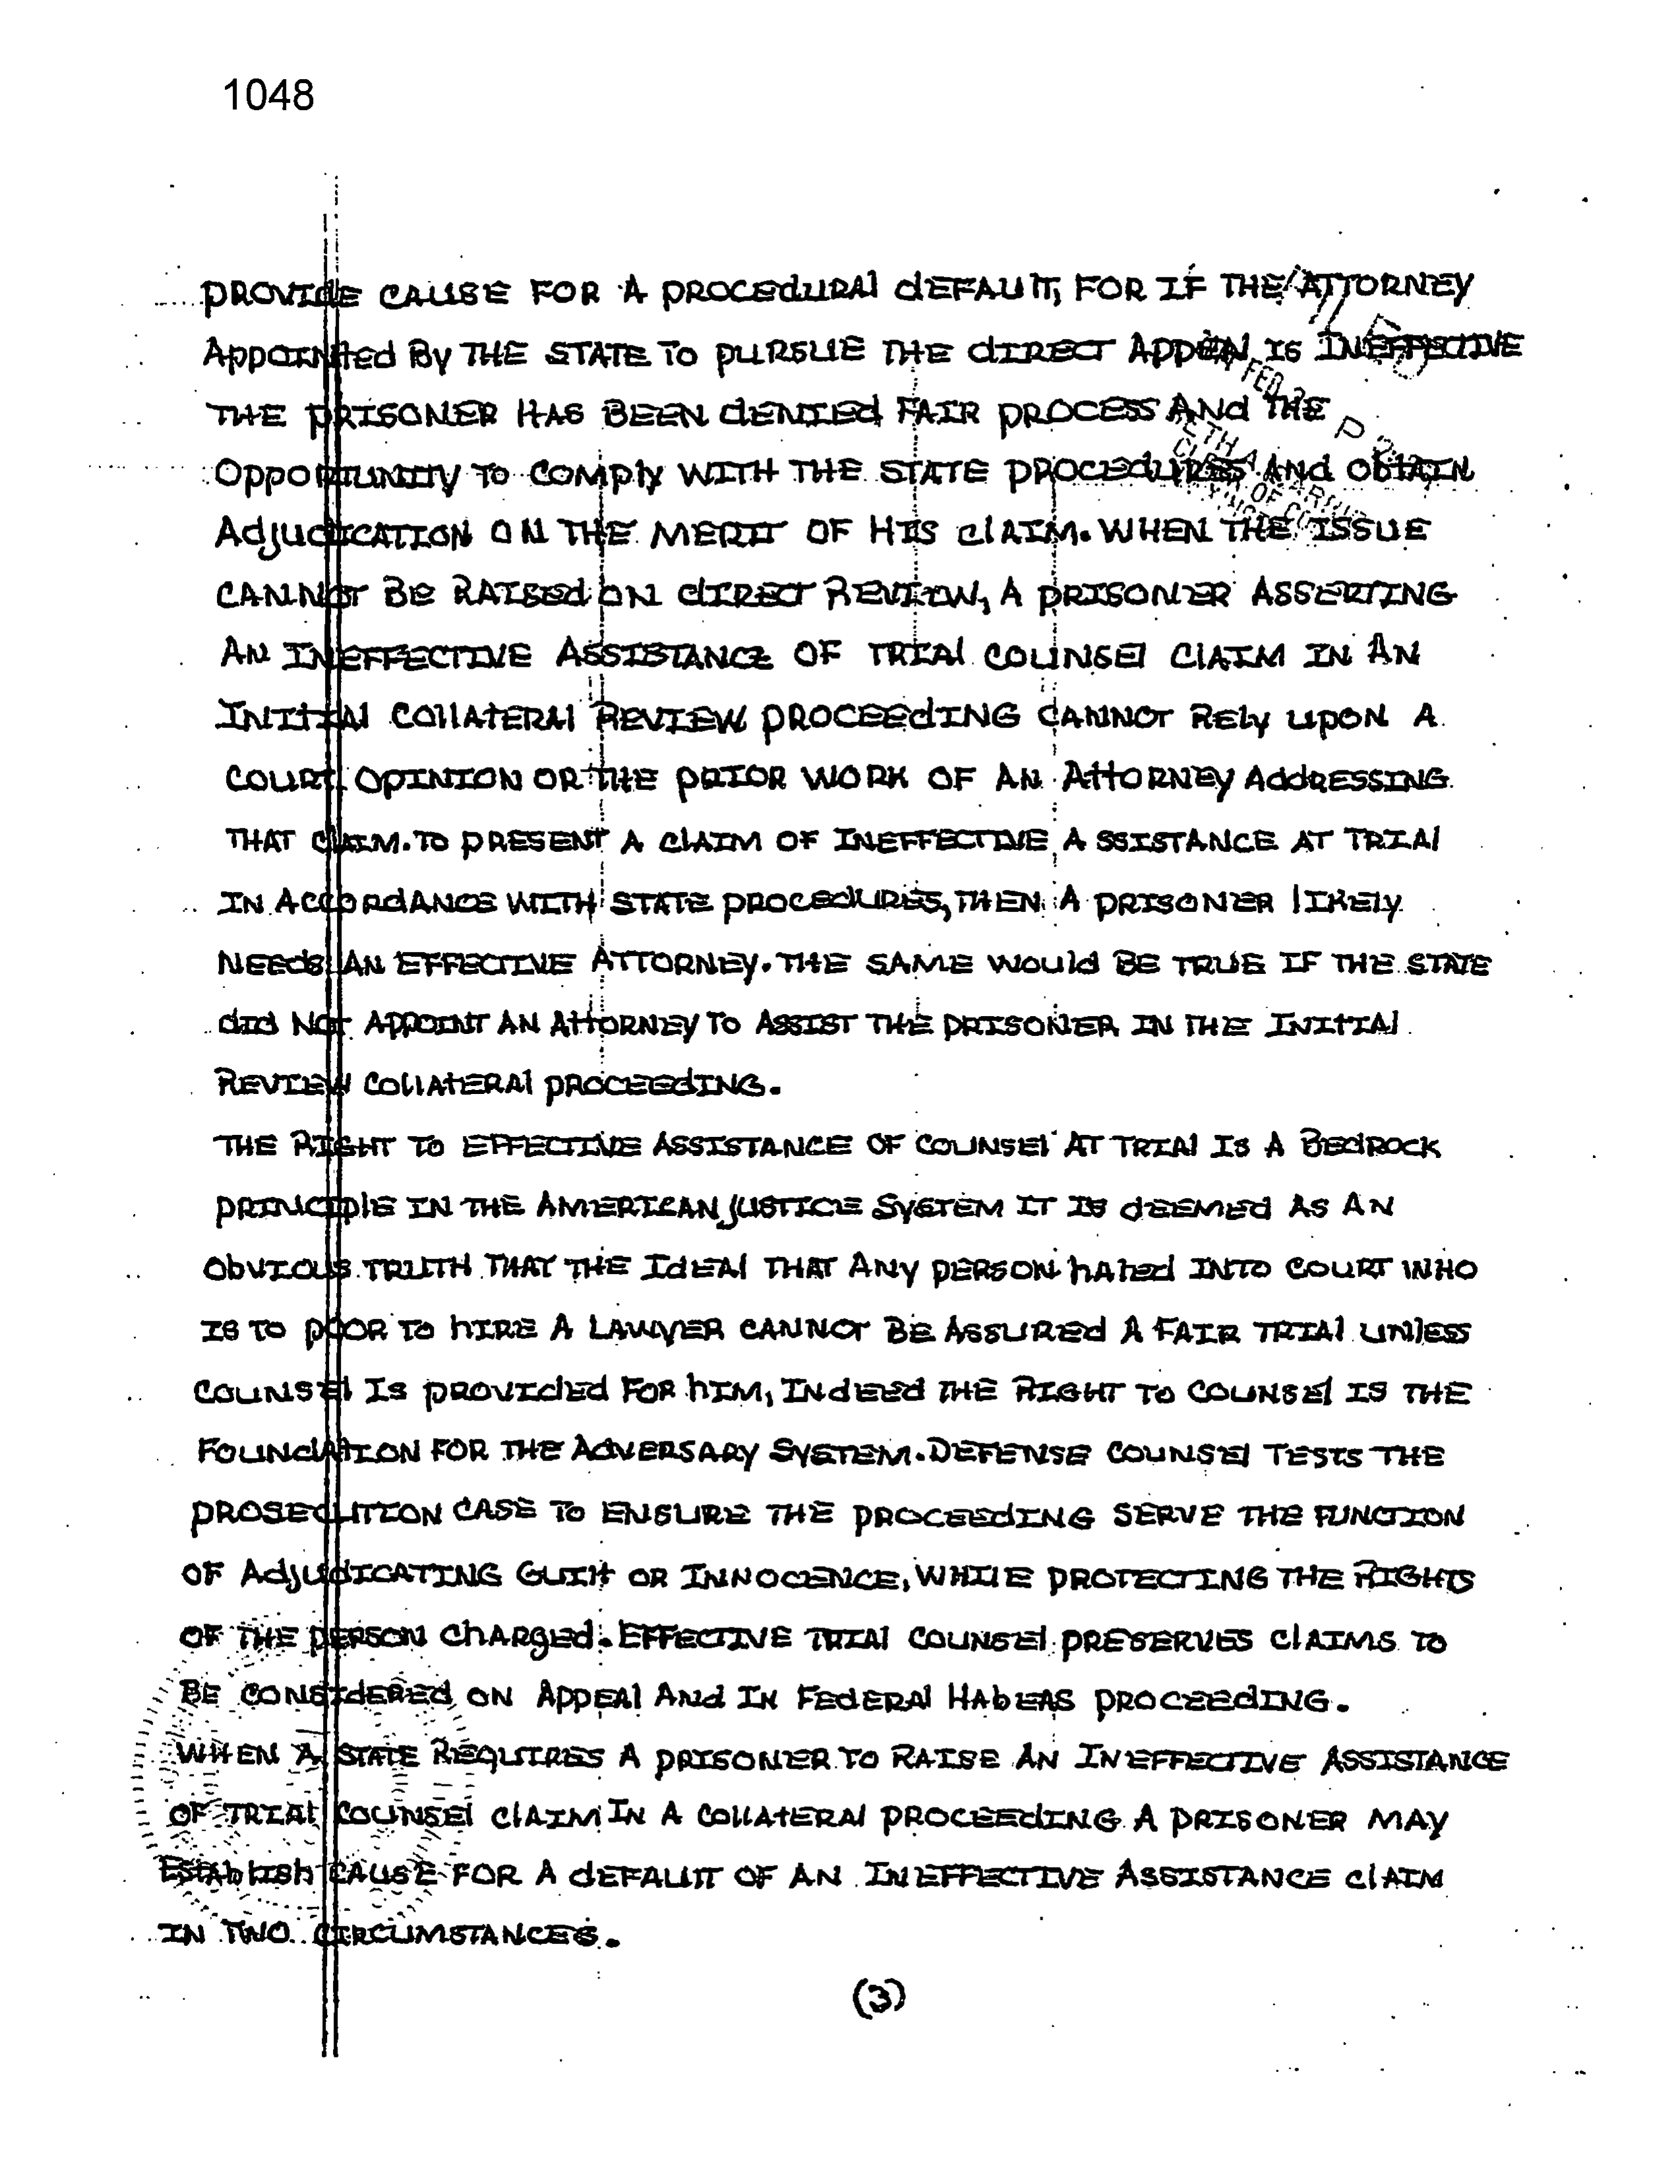 1048
PROVIDE CAUSE FOR A PROCEDURAL DEFAULT, FOR IF THE ATTORNEY
APPOINTED BY THE STATE TO PURSUE THE DIRECT APPEAL IS INEFFECTIVE
THE PRISONER HAS BEEN DENIED FAIR PROCESS AND THE
OPPORTUNITY TO COMPLY WITH THE STATE PROCEDURES AND OBTAIN
ADJUDICATION ON THE MERIT OF HIS CLAIM. WHEN THE ISSUE
CANNOT BE RAISED ON DIRECT REVIEW, A PRISONER ASSERTING
AN INEFFECTIVE ASSISTANCE OF TRIAL COUNSEL CLAIM IN AN
INITIAL COLLATERAL REVIEW PROCEEDING CANNOT RELY UPON A
COURT OPINION OR THE PRIOR WORK OF AN ATTORNEY ADDRESSING
THAT CLAIM. TO PRESENT A CLAIM OF INEFFECTIVE ASSISTANCE AT TRIAL
IN ACCORDANCE WITH STATE PROCEDURES, THEN A PRISONER LIKELY
NEEDS AN EFFECTIVE ATTORNEY. THE SAME WOULD BE TRUE IF THE STATE
DID NOT APPOINT AN ATTORNEY TO ASSIST THE PRISONER IN THE INITIAL
REVIEW COLLATERAL PROCEEDING.
THE RIGHT TO EFFECTIVE ASSISTANCE OF COUNSEL AT TRIAL IS A BEDROCK
PRINCIPLE IN THE AMERICAN JUSTICE SYSTEM IT IS DEEMED AS AN
OBVIOUS TRUTH THAT THE IDEAL THAT ANY PERSON HALED INTO COURT WHO
IS TO POOR TO HIRE A LAWYER CANNOT BE ASSURED A FAIR TRIAL UNLESS
COUNSEL IS PROVIDED FOR HIM, INDEED THE RIGHT TO COUNSEL IS THE
FOUNDATION FOR THE ADVERSARY SYSTEM. DEFENSE COUNSEL TESTS THE
PROSECUTION CASE TO ENSURE THE PROCEEDING SERVE THE FUNCTION
OF ADJUDICATING GUILT OR INNOCENCE, WHILE PROTECTING THE RIGHTS
OF THE PERSON CHARGED. EFFECTIVE TRIAL COUNSEL PRESERVES CLAIMS TO
BE CONSIDERED ON APPEAL AND IN FEDERAL HABEAS PROCEEDING.
WHEN A STATE REQUIRES A PRISONER TO RAISE AN INEFFECTIVE ASSISTANCE
OF TRIAL COUNSEL CLAIM IN A COLLATERAL PROCEEDING A PRISONER MAY
ESTABLISH CAUSE FOR A DEFAULT OF AN INEFFECTIVE ASSISTANCE CLAIM
IN TWO CIRCUMSTANCES.
(3)